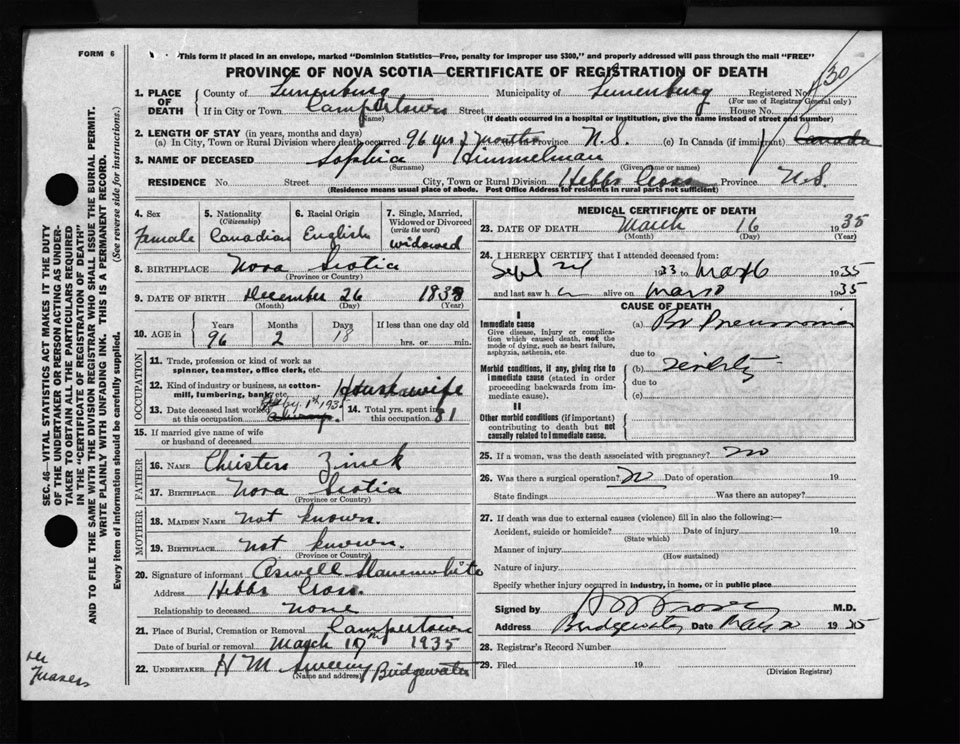 FORM 6
This form if placed in an envelope, marked "Dominion Statistics—Free, penalty for improper use $300," and properly addressed will pass through the mail "FREE"
PROVINCE OF NOVA SCOTIA—CERTIFICATE OF REGISTRATION OF DEATH
1. PLACE OF DEATH County of Lunenburg Municipality of Lunenburg Registered No. 130
(For use of Registrar General only)
If in City or Town Campertown Street House No.
(Name) (If death occurred in a hospital or institution, give the name instead of street and number)
2. LENGTH OF STAY (in years, months and days)
(a) In City, Town or Rural Division where death occurred 96 yrs 2 months Province N.S. (c) In Canada (if immigrant) Canada
3. NAME OF DECEASED Sophia Himmelman
(Surname) (Given name or names)
RESIDENCE No. Street City, Town or Rural Division Hebbs Cross Province N.S.
(Residence means usual place of abode. Post Office Address for residents in rural parts not sufficient)
4. Sex Female
5. Nationality (Citizenship) Canadian
6. Racial Origin English
7. Single, Married, Widowed or Divorced (write the word) widowed
8. BIRTHPLACE Nova Scotia
(Province or Country)
9. DATE OF BIRTH December 26 1838
(Month) (Day) (Year)
10. AGE in Years 96 Months 2 Days 18 If less than one day old hrs. or min.
OCCUPATION
11. Trade, profession or kind of work as spinner, teamster, office clerk, etc.
12. Kind of industry or business, as cotton-mill, lumbering, bank, etc. Housewife
13. Date deceased last worked at this occupation 1st 1935
14. Total yrs. spent in this occupation 81
15. If married give name of wife or husband of deceased
FATHER
16. NAME Christen Zinck
17. BIRTHPLACE Nova Scotia
(Province or Country)
MOTHER
18. MAIDEN NAME not known.
19. BIRTHPLACE not known.
(Province or Country)
20. Signature of informant Oswell Slauenwhite
Address Hebbs Cross.
Relationship to deceased none
21. Place of Burial, Cremation or Removal Campertown
Date of burial or removal March 17th 1935
22. UNDERTAKER H M Sweeny Bridgewater
(Name and address)
MEDICAL CERTIFICATE OF DEATH
23. DATE OF DEATH March 16 1935
(Month) (Day) (Year)
24. I HEREBY CERTIFY that I attended deceased from:
Sept 24 1933 to Mar 16 1935
and last saw h alive on 1935
CAUSE OF DEATH
I
Immediate cause
Give disease, injury or complication which caused death, not the mode of dying, such as heart failure, asphyxia, asthenia, etc.
(a) Br Pneumonia
due to
Morbid conditions, if any, giving rise to immediate cause (stated in order proceeding backwards from immediate cause)
(b) Senility
due to
(c)
II
Other morbid conditions (if important) contributing to death but not causally related to immediate cause.
25. If a woman, was the death associated with pregnancy? no
26. Was there a surgical operation? No Date of operation 19
State findings Was there an autopsy?
27. If death was due to external causes (violence) fill in also the following:—
Accident, suicide or homicide? Date of injury 19
(State which)
Manner of injury
(How sustained)
Nature of injury
Specify whether injury occurred in industry, in home, or in public place
Signed by M.D.
Address Bridgewater Date 1935
28. Registrar's Record Number
29. Filed 19
(Division Registrar)
SEC. 46—VITAL STATISTICS ACT MAKES IT THE DUTY OF THE UNDERTAKER OR PERSON ACTING AS UNDERTAKER TO OBTAIN ALL THE PARTICULARS REQUIRED IN THE "CERTIFICATE OF REGISTRATION OF DEATH"
AND TO FILE THE SAME WITH THE DIVISION REGISTRAR WHO SHALL ISSUE THE BURIAL PERMIT.
WRITE PLAINLY WITH UNFADING INK. THIS IS A PERMANENT RECORD.
Every item of information should be carefully supplied. (See reverse side for instructions.)